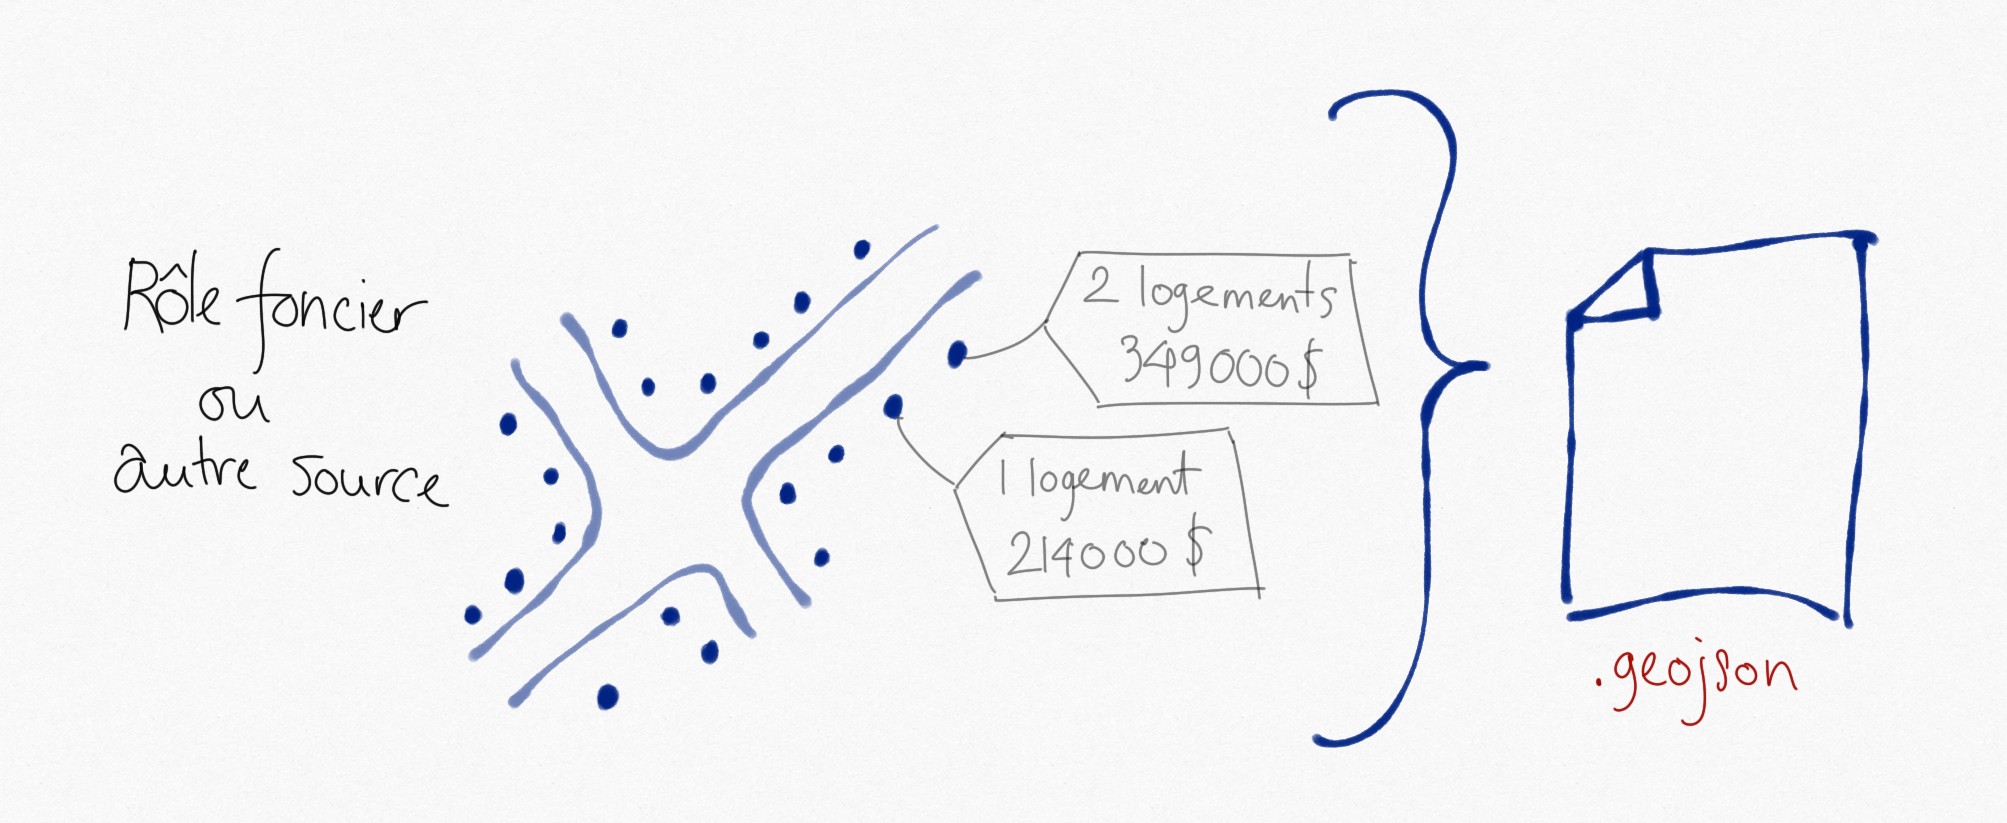 Rôle foncier
ou
autre source
2 logements
349000 $
1 logement
214000 $
.geojson